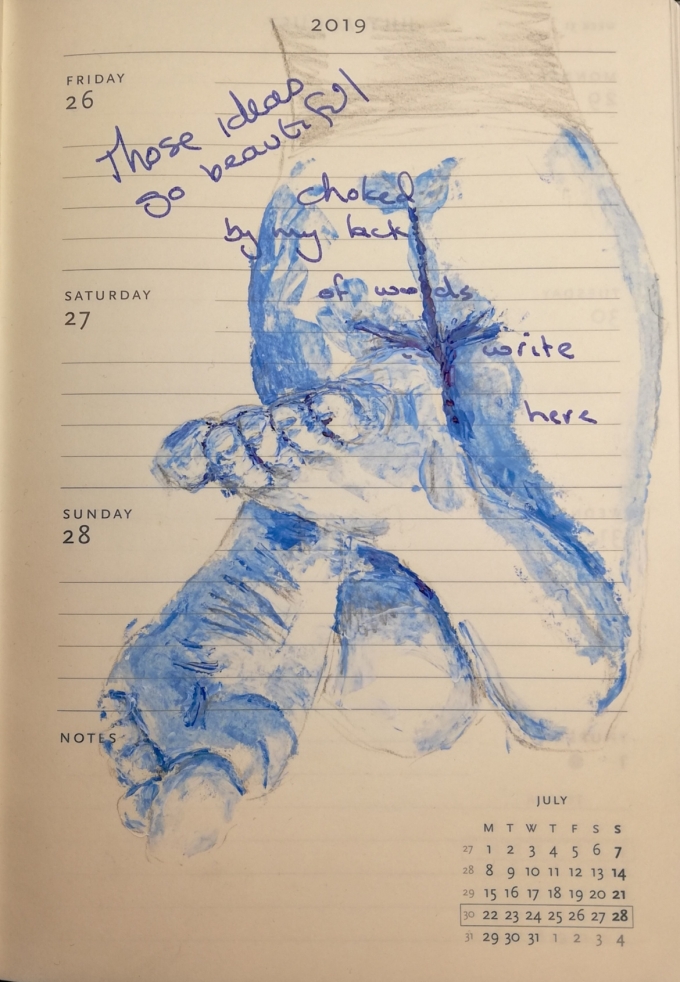 2019
FRIDAY
26
Those ideas
so beautiful
choked
by my lack
SATURDAY
27
of words
write
here
SUNDAY
28
NOTES
JULY
M T W T F S S
27 1 2 3 4 5 6 7
28 8 9 10 11 12 13 14
29 15 16 17 18 19 20 21
30 22 23 24 25 26 27 28
31 29 30 31 1 2 3 4